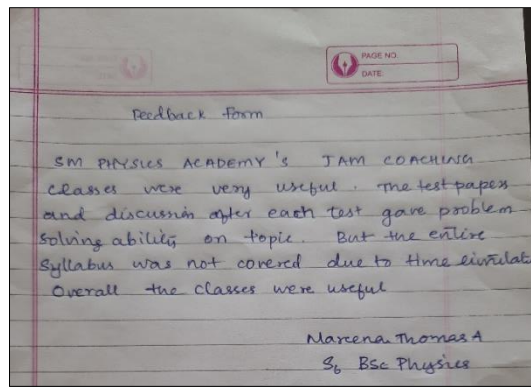 PAGE NO.
DATE:
Feedback Form
SM PHYSICS ACADEMY'S JAM COACHING
classes were very useful. The test papers
and discussion after each test gave problem
solving ability on topic. But the entire
syllabus was not covered due to time
Overall the classes were useful
Mareena Thomas A
S6 BSc Physics